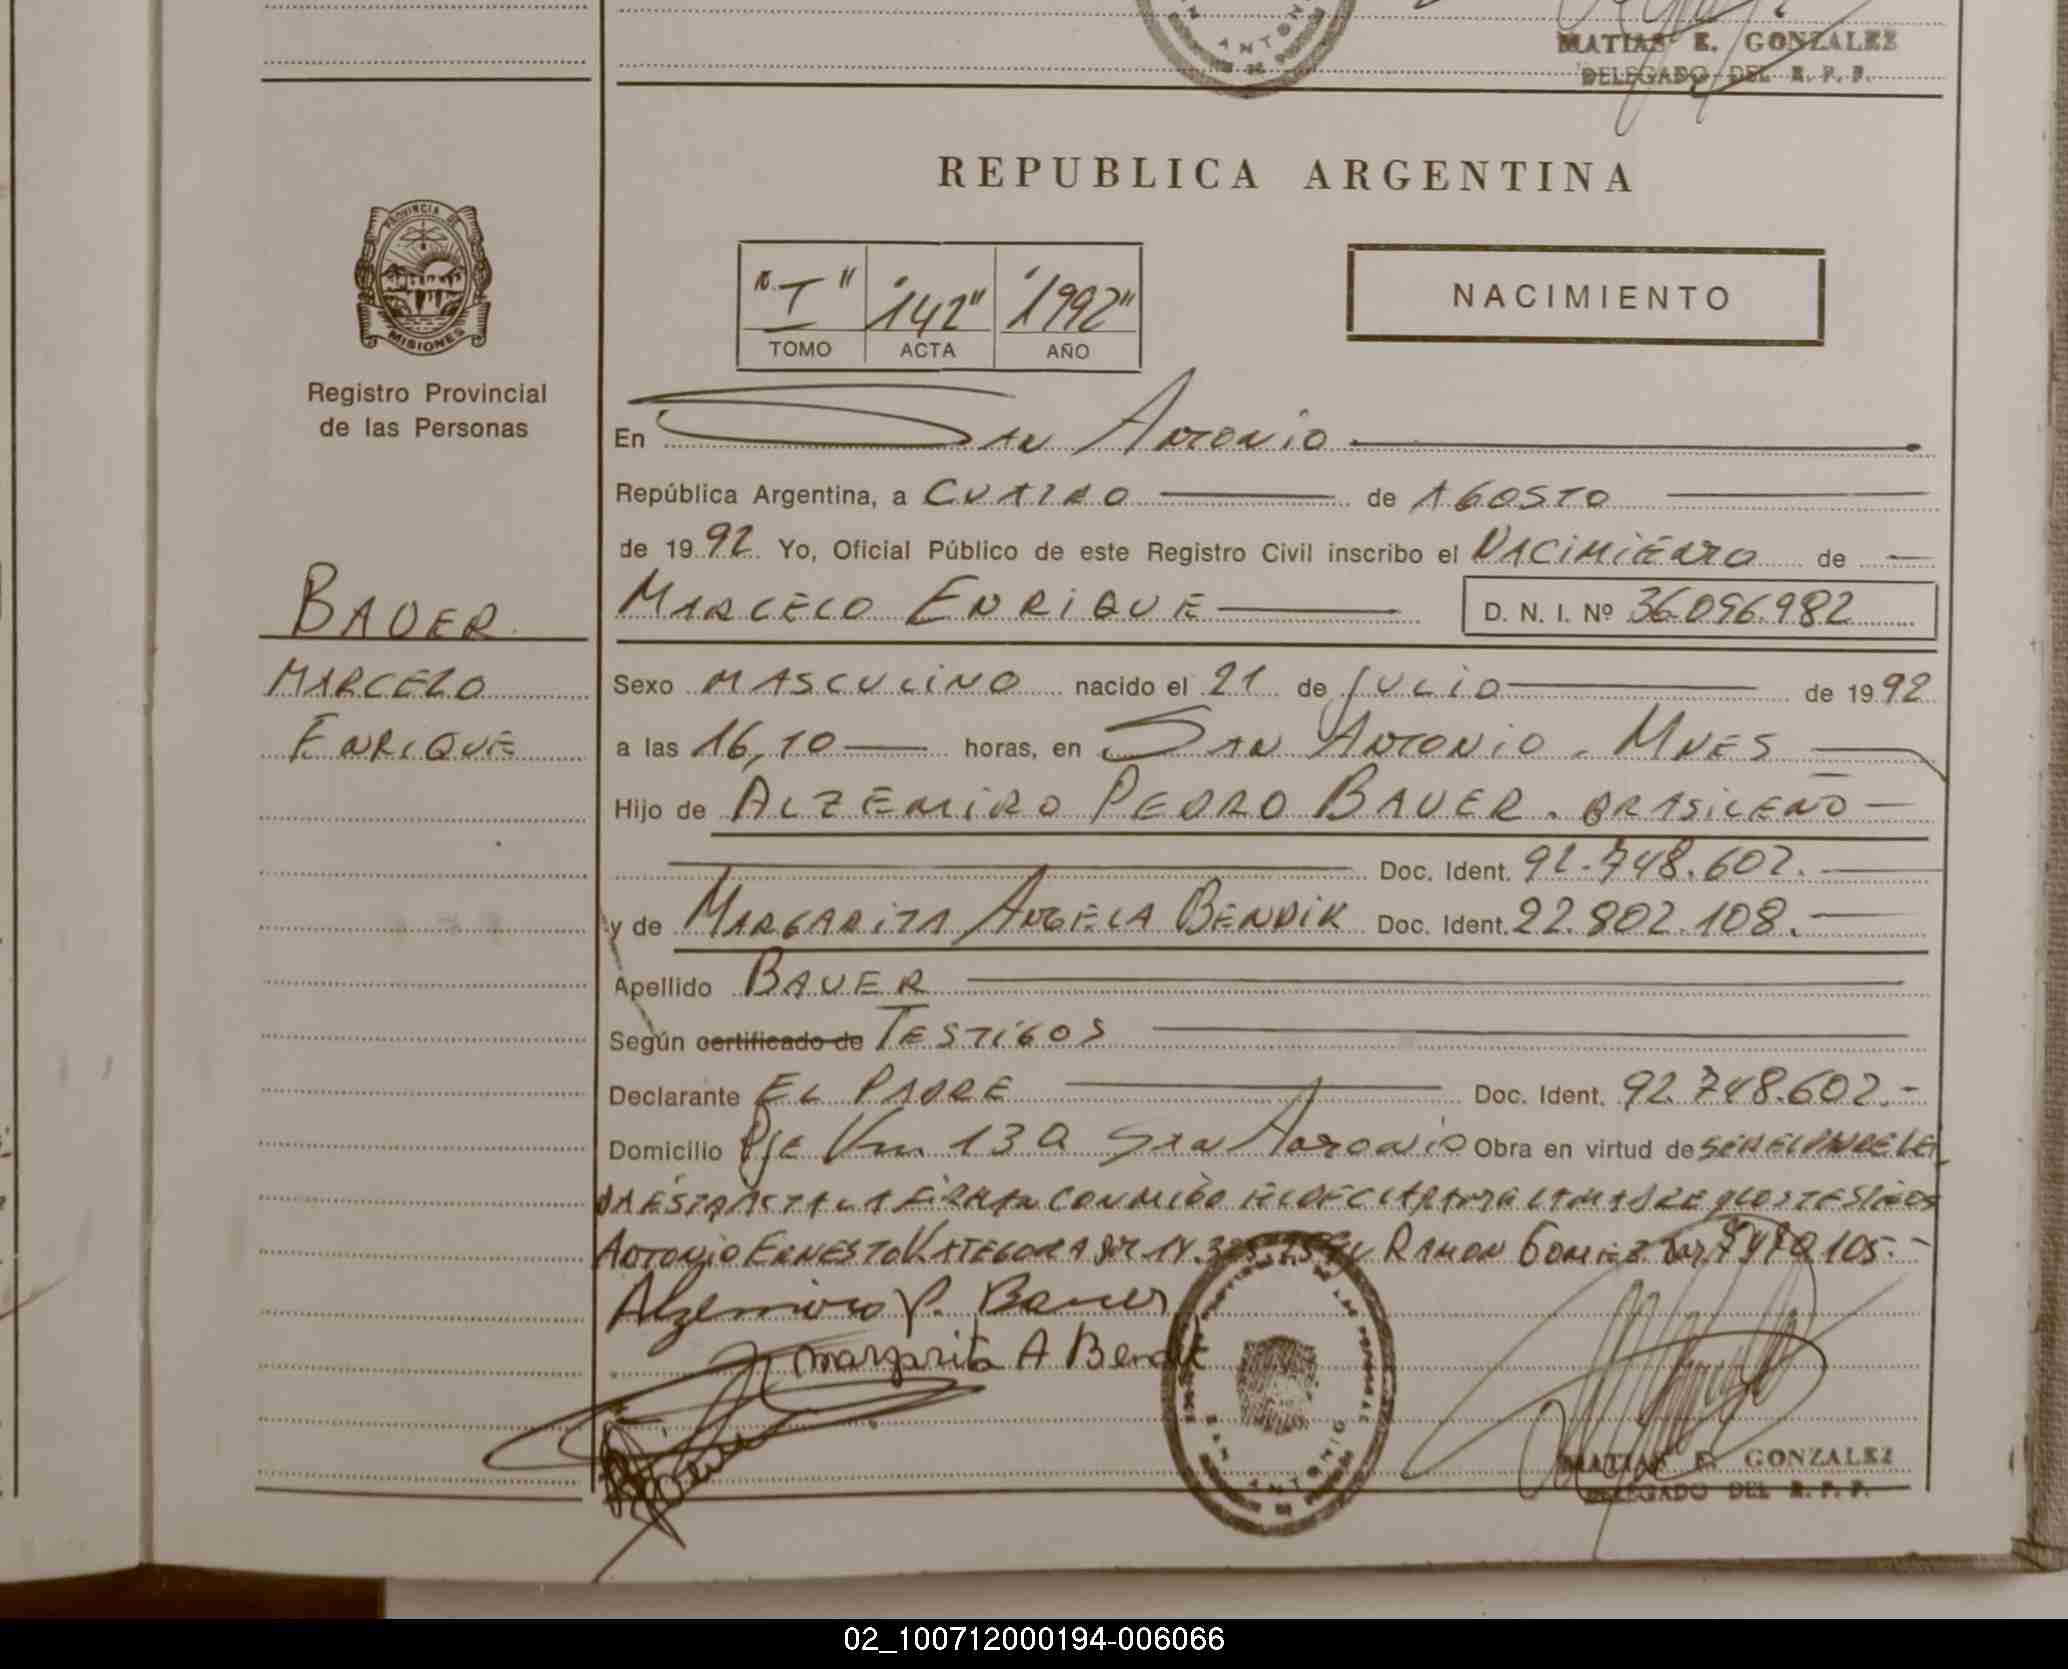 MATIAS E. GONZALEZ
DELEGADO DEL R. P. P.
REPUBLICA ARGENTINA
PROVINCIA DE
MISIONES
Registro Provincial
de las Personas
"I" "142" "1992"
TOMO ACTA AÑO
NACIMIENTO
En San Antonio
República Argentina, a CUATRO de AGOSTO
de 1992 Yo, Oficial Público de este Registro Civil inscribo el NACIMIENTO de
BAUER
MARCELO ENRIQUE D. N. I. Nº 36.096.982
MARCELO
ENRIQUE
Sexo MASCULINO nacido el 21 de JULIO de 1992
a las 16,10 horas, en SAN ANTONIO. MNES
Hijo de ALZEMIRO PEDRO BAUER. BRASILEÑO
Doc. Ident. 92.748.602.
y de MARGARITA ANGELA BENDIK Doc. Ident. 22.802.108.
Apellido BAUER
Según certificado de TESTIGOS
Declarante EL PADRE Doc. Ident. 92.748.602.-
Domicilio Pje Km. 130 San Antonio Obra en virtud de
ESTA ACTA LA FIRMAN CONMIGO EL DECLARANTE LA MADRE Y LOS TESTIGOS
ANTONIO ERNESTO RAMON GOMEZ
Alzemiro P. Bauer
margarita A Bendik
SAN ANTONIO
MATIAS E. GONZALEZ
DELEGADO DEL R. P. P.
02_100712000194-006066